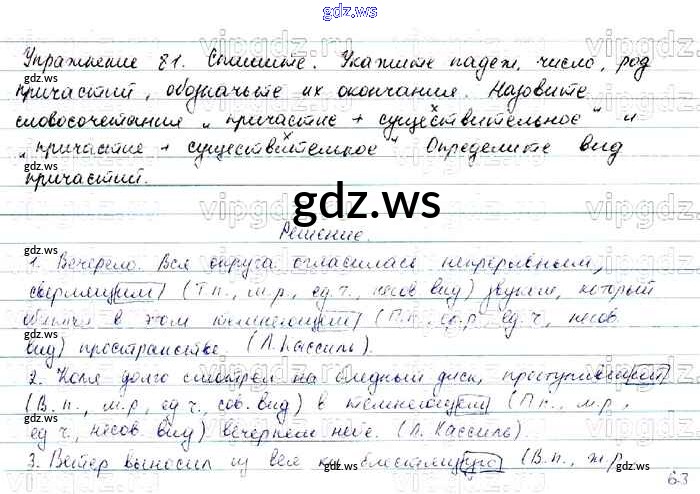 gdz.ws
Упражнение 81. Спишите. Укажите падеж, число, род
причастий, обозначьте их окончания. Назовите
словосочетания "причастие + существительное" и
"причастие + существительное" Определите вид
причастий.
gdz.ws
Решение.
1. Вечерело. Вся округа огласилась непрерывным,
сверлящим (Т.п., м.р., ед.ч., несов. вид) звуком, который
в этом темнеющем (П.п., ср.р. ед.ч., несов.
вид) пространстве. (Л. Кассиль).
2. Коля долго смотрел на бледный диск, проступивший
(В.п., м.р., ед.ч., сов. вид) в темнеющем (П.п.,
ед.ч., несов. вид) вечернем небе. (Л. Кассиль).
3. Ветер выносил из блестящую (В.п., ж.р.,
63